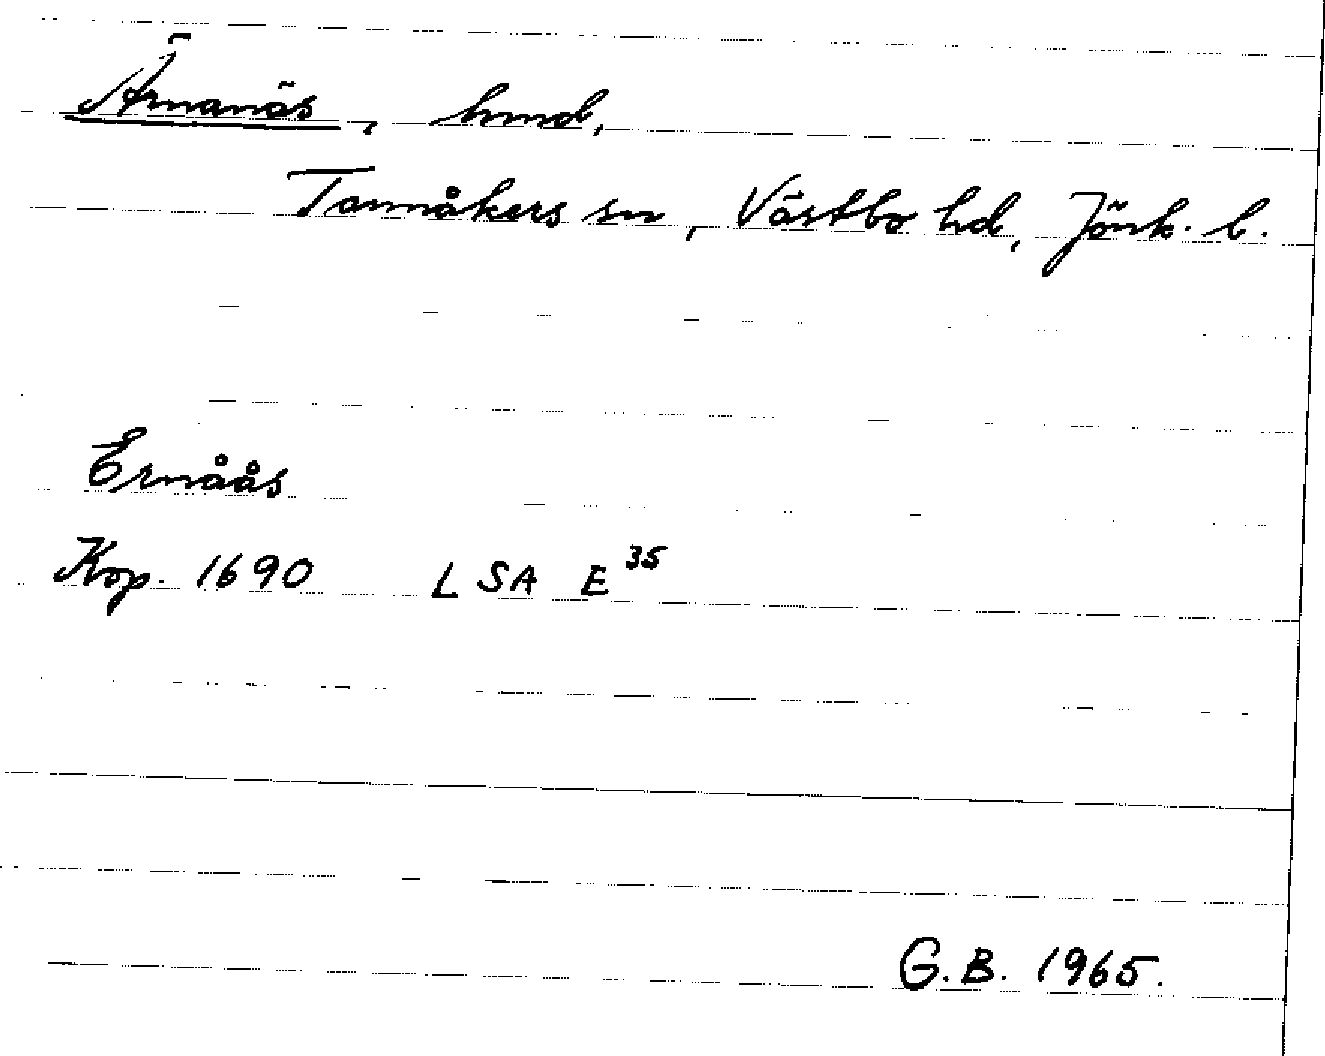 Ärnanäs, hmd,
Tannåkers sn, Västbo hd, Jönk. l.
Ernåås
Kop. 1690 LSA E 35
G.B. 1965.